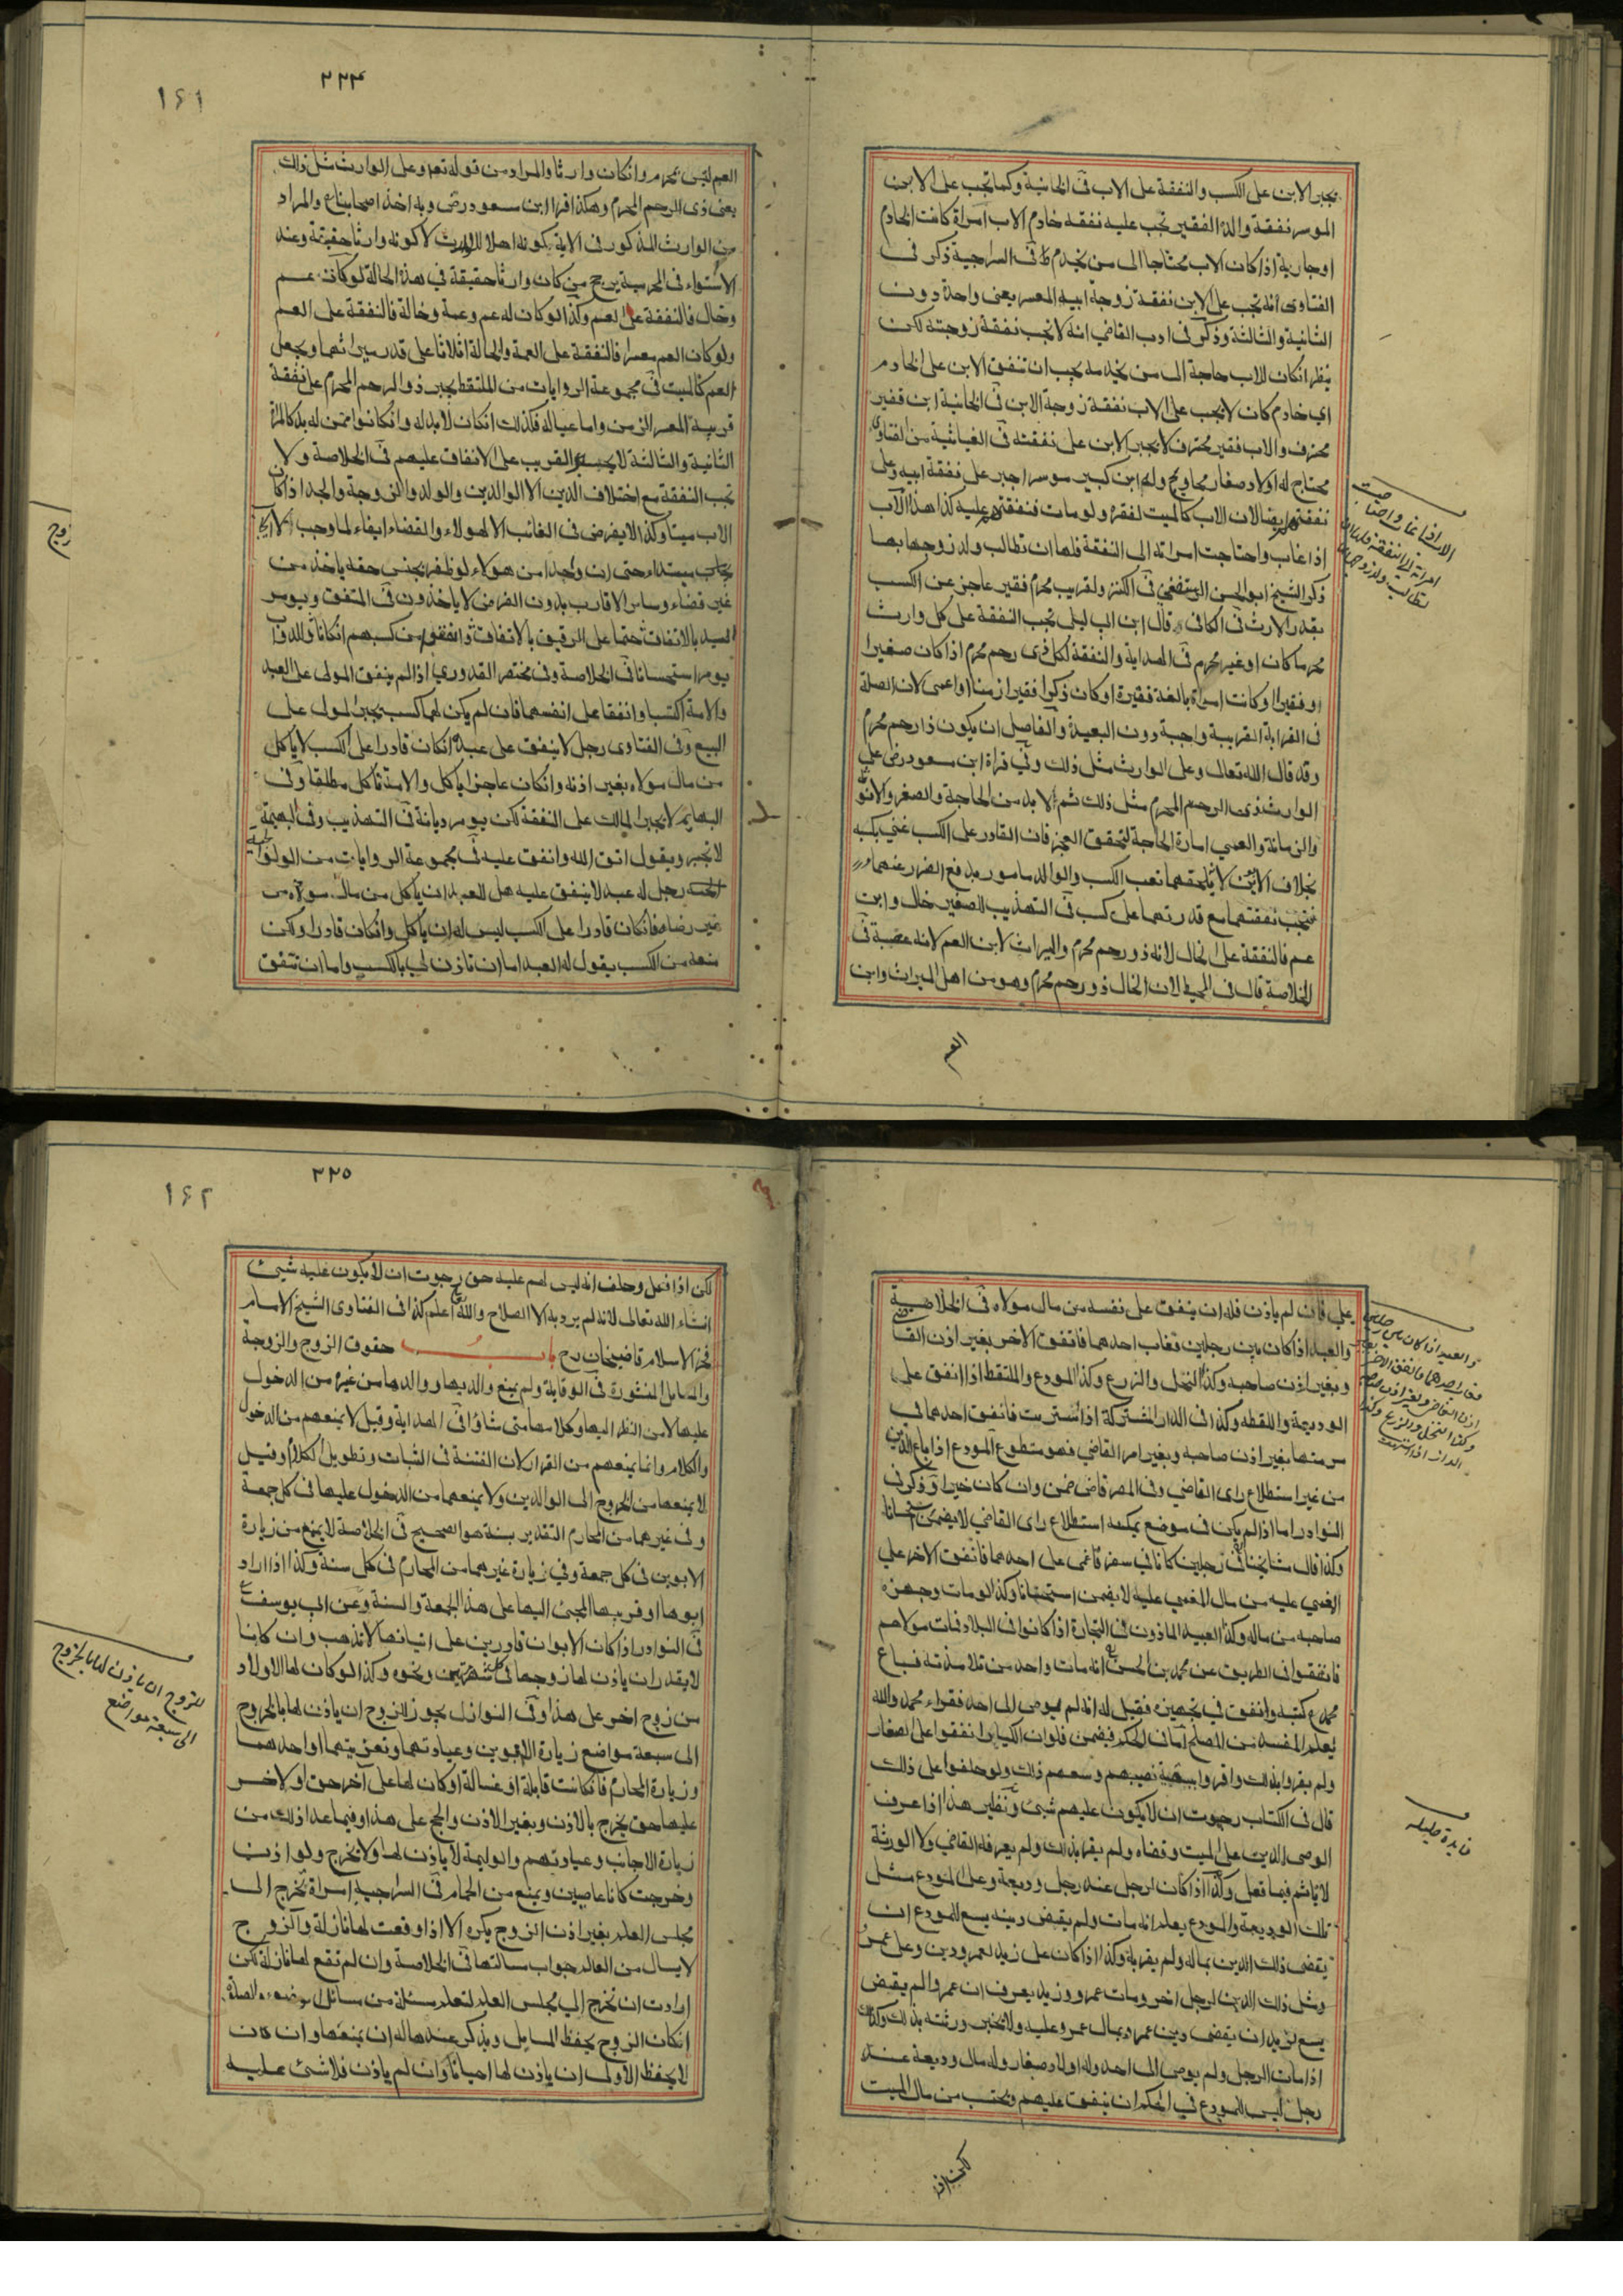 يجبر الابن على الكسب والنفقة على الاب فى الخانية وكما تجب على الابن
الموسر نفقة والده الفقير تجب عليه نفقة خادم الاب امراة كانت الخادم
او جارية اذا كان الاب محتاجا الى من يخدمه فى السراجية ذكر فى
الفتاوى انه تجب على الابن نفقة زوجة ابيه المعسر يعنى واحدة دون
الثانية والثالثة وذكر فى ادب القاضي انه لا تجب نفقة زوجته لكن
ينظر انكان للاب حاجة الى من يخدمه يجب ان تنفق الابن على الخادم
اي خادم كان لا يجب على الاب نفقة زوجة الابن فى الخانية ابن فقير
محترف والاب فقير محترف لا يجبر الابن على نفقته فى الغياثية من الفتاوى
محتاج له اولاد صغار محاويج وله ابن كبير موسر اجبر على نفقة ابيه وعلى
نفقتهم ايضا لان الاب كالميت لفقره ولو مات فنفقتهم عليه كذا هذا الاب
اذا غاب واحتاجت امراته الى النفقة فلها ان تطالب ولد زوجها بها
ذكر الشيخ ابو الحسن الرستغفني فى الكنز ولقريب محرم فقير عاجز عن الكسب
بقدر الارث فى الكافى قال ابن ابي ليلى تجب النفقة على كل وارث
محرما كان او غير محرم فى الهداية والنفقة لكل ذى رحم محرم اذا كان صغيرا
او فقيرا او كانت امراة بالغة فقيرة او كان ذكرا فقيرا زمنا او اعمى لان الصلة
فى القرابة القريبة واجبة دون البعيدة والفاصل ان يكون ذا رحم محرم
وقد قال الله تعالى وعلى الوارث مثل ذلك وفي قراة ابن مسعود رض على
الوارث ذى الرحم المحرم مثل ذلك ثم لا بد من الحاجة والصغر والانوثة
والزمانة والعمي امارة الحاجة لتحقق العجز فان القادر على الكسب غني بكسبه
بخلاف الابوين لا يلحقهما تعب الكسب والوالد مامور بدفع الضرر عنهما
فتجب نفقتهما مع قدرتهما على كسب فى التهذيب للصغير خال وابن
عم فالنفقة على الخال لانه ذو رحم محرم والميراث لابن العم لانه عصبة فى
الخلاصة قال فى المحيط لان الخال ذو رحم محرم وهو من اهل الميراث وابن
العم
الاب اذا غاب واحتاجت
امراته الى النفقة فلها ان
تطالب ولد زوجها بها
٢٢٤
١٦١
العم ليس بمحرم وانكان وارثا والمراد من قوله تعه وعلى الوارث مثل ذلك
يعنى ذى الرحم المحرم وهكذا قرا ابن مسعود رض وبه اخذ اصحابنا ع والمراد
من الوارث المذكور فى الاية بكونه اهلا للارث لا كونه وارثا حقيقة وعند
الاستواء فى المحرمية يرجح من كان وارثا حقيقة في هذه الحالة لو كان عم
وخال فالنفقة على العم وكذا لو كان له عم وعمة وخالة فالنفقة على العم
ولو كان العم معسرا فالنفقة على العمة والخالة اثلاثا على قدر ميراثهما ويجعل
العم كالميت فى مجموعة الروايات من الملتقط يجبر ذو الرحم المحرم على نفقة
قريبه المعسر الزمن واما عياله فكذلك انكان لا بد له وانكانوا ممن له بد كالمراة
الثانية والثالثة لا يجبر القريب على الانفاق عليهم فى الخلاصة ولا
تجب النفقة مع اختلاف الدين الا الوالدين والولد والزوجة والجد اذا كان
الاب ميتا وكذا لا يفرض فى الغائب الا لهولاء والقضاء ايفاء لما وجب
مبتداء حتى ان واحدا من هولاء لو ظفر بجنس حقه ياخذ من
غير قضاء وساير الاقارب بدون الفرض لا ياخذون فى المتفق ويومر
السيد بالانفاق حتما على الرقيق بالاتفاق وانفقوا من كسبهم انكان والدواب
يومر استحسانا فى الخلاصة وفى مختصر القدوري اذا لم ينفق المولى على العبد
والامة اكتسبا وانفقا على انفسهما فان لم يكن لهما كسب يجبر المولى على
البيع وفى الفتاوى رجل لا ينفق على عبده انكان قادرا على الكسب لا ياكل
من مال مولاه بغير اذنه وانكان عاجزا ياكل والامة تاكل مطلقا وفى
البهايم لا يجبر المالك على النفقة لكن يومر ديانة فى التهذيب وفى البهيمة
لا يجبر ويقول اتق الله وانفق عليه فى مجموعة الروايات من الولوالجية
رجل له عبد لا ينفق عليه هل للعبد ان ياكل من مال مولاه من
غير رضاه فانكان قادرا على الكسب ليس له ان ياكل وانكان قادرا ولكن
منعه من الكسب يقول له العبد اما ان تاذن لي بالكسب واما ان تنفق
زوج
علي فان لم ياذن فله ان ينفق على نفسه من مال مولاه فى الخلاصة
والعبد اذا كان بين رجلين فغاب احدهما فانفق الاخر بغير اذن القا
وبغير اذن صاحبه وكذا النخل والزرع وكذا المودع والملتقط اذا انفق على
الوديعة واللقطه وكذا فى الدار المشتركة اذا استرمت فانفق احدهما فى
مرمتها بغير اذن صاحبه وبغير امر القاضي فهو متطوع المودع اذا باع
من غير استطلاع راى القاضي وفى المصر قاض ضمن وان كان خيرا وذكر فى
النوادر اما اذا لم يكن فى موضع يمكنه استطلاع راى القاضي لا يضمن استحسانا
وكذا قال مشايخنا فى رجلين كانا في سفر فاغمى على احدهما فانفق الاخر على
المغمي عليه من مال المغمي عليه لا يضمن استحسانا وكذا لو مات وجهزه
صاحبه من ماله وكذا العبيد الماذون فى التجارة اذا كانوا فى البلاد فمات مولاهم
فانفقوا فى الطريق عن محمد بن الحسن انه مات واحد من تلامذته فباع
محمد كتبه وانفق فى تجهيزه فقيل له انه لم يوص الى احد فقراء محمد والله
يعلم المفسد من المصلح اما فى الحكم فيضمن فلو ان الكبار انفقوا على الصغار
ولم يقروا بذلك واقروا ببقية نصيبهم وسعهم ذلك ولو حلفوا على ذلك
قال فى الكتاب رجوت ان لا يكون عليهم شيئ ونظير هذا اذا عرف
الوصى الدين على الميت وقضاه ولم يقر بذلك ولم يعرفه القاضي ولا الورثة
لا ياثم فيما فعل وكذا اذا كان لرجل عند رجل وديعة وعلى المودع مثل
تلك الوديعة والمودع يعلم انه مات ولم يقبض دينه يسع للمودع ان
يقضى ذلك الدين بماله ولم يقر به وكذا اذا كان على زيد لعمرو دين وعلى عمرو
ومثل ذلك الدين لرجل اخر ومات عمرو وزيد يعرف ان عمروا لم يقبض
يسع لزيد ان يقضى دين عمرو بمال عمرو عليه ولا يخبر ورثته بذلك وكذلك
اذا مات الرجل ولم يوص الى احد وله اولاد صغار وله مال وديعة عند
رجل ليس للمودع في الحكم ان ينفق عليهم ويحتسب من مال الميت
لكن اذ
والعبد اذا كان بين رجلين
فغاب احدهما فانفق الاخر بغير
اذن القاضى وبغير اذن صاحبه
وكذا النخل والزرع وكذا
الدار اذا استرمت
فايدة جليله
٢٢٥
١٦٢
لكن اذا فعل وحلف انه ليس لهم عليه حق رجوت ان لا يكون عليه شيئ
انشاء الله تعالى لانه لم يرد به الا الصلاح والله اعلم كذا فى الفتاوى الشيخ الامام
فخر الاسلام قاضيخان رح باب حقوق الزوج والزوجة
والمسايل المنثورة فى الوقاية ولم يمنع والديها وولدها من غيره من الدخول
عليها لا من النظر اليها وكلامها متى شاؤا فى الهداية وقيل لا يمنعهم من الدخول
والكلام وانما يمنعهم من القرار لان الفتنة فى الثبات وتطويل الكلام وقيل
لا يمنعها من الخروج الى الوالدين ولا يمنعهما من الدخول عليها فى كل جمعة
وفى غيرهما من المحارم التقدير بسنة هو الصحيح فى الخلاصة لا يمنع من زيارة
الابوين فى كل جمعة وفي زيارة غيرهما من المحارم فى كل سنة وكذا اذا اراد
ابوها او قريبها المجئ اليها على هذا الجمعة والسنة وعن ابي يوسف
فى النوادر اذا كان الابوان قادرين على اتيانها لا تذهب وان كانا
لا يقدران ياذن لها زوجها فى كل شهرين ونحوه وكذا لو كان لها الاولاد
من زوج اخر على هذا وفى النوازل يجوز للزوج ان ياذن لها بالخروج
الى سبعة مواضع زيارة الابوين وعيادتهما وتعزيتهما او احدهما
وزيارة المحارم فانكانت قابلة او غسالة او كان لها على آخر حق او لاخر
عليها حق يخرج بالاذن وبغير الاذن والحج على هذا وفيما عدا ذلك من
زيارة الاجانب وعيادتهم والوليمة لا ياذن لها ولا تخرج ولو اذن
وخرجت كانا عاصيين ويمنع من الحمام فى السراجية امراة تخرج الى
مجلس العلم بغير اذن الزوج يكره الا اذا وقعت لها نازلة والزوج
لا يسال من العالم جواب مسالتها فى الخلاصة وان لم تقع لها نازلة لكن
ارادت ان تخرج الى مجلس العلم لتعلم مسئلة من مسائل الوضوء والصلة
انكان الزوج يحفظ المسايل ويذكر عندها له ان يمنعها وان كان
لا يحفظ الاولى ان ياذن لها احيانا وان لم ياذن فلا شئ عليه
للزوج ان ياذن لها بالخروج
الى سبعة مواضع